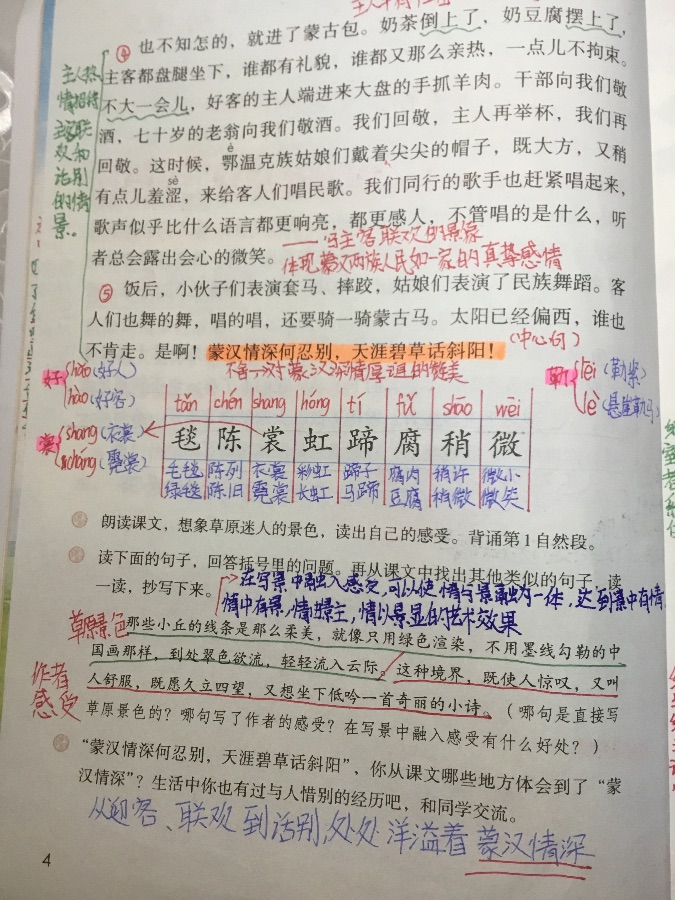 ④ 也不知怎的，就进了蒙古包。奶茶倒上了，奶豆腐摆上了，
主客都盘腿坐下，谁都有礼貌，谁都又那么亲热，一点儿不拘束。
不大一会儿，好客的主人端进来大盘的手抓羊肉。干部向我们敬
酒，七十岁的老翁向我们敬酒。我们回敬，主人再举杯，我们再
è
回敬。这时候，鄂温克族姑娘们戴着尖尖的帽子，既大方，又稍
sè
有点儿羞涩，来给客人们唱民歌。我们同行的歌手也赶紧唱起来，
歌声似乎比什么语言都更响亮，都更感人，不管唱的是什么，听
者总会露出会心的微笑。
——写主客联欢的景象
体现蒙汉两族人民如一家的真挚感情
主人热
情招待
主客联
欢和
话别
的情
景。
⑤ 饭后，小伙子们表演套马、摔跤，姑娘们表演了民族舞蹈。客
人们也舞的舞，唱的唱，还要骑一骑蒙古马。太阳已经偏西，谁也
不肯走。是啊！蒙汉情深何忍别，天涯碧草话斜阳！
(中心句)
对蒙汉深情厚谊的赞美
好 hǎo(好人)
hào(好客)
裳 shang(衣裳)
cháng(霓裳)
勒 lēi(勒紧)
lè(悬崖勒马)
tǎn chén shang hóng tí fǔ shāo wēi
毯 陈 裳 虹 蹄 腐 稍 微
毛毯 陈列 衣裳 彩虹 蹄子 腐肉 稍许 微小
绿毯 陈旧 霓裳 长虹 马蹄 豆腐 稍微 微笑
朗读课文，想象草原迷人的景色，读出自己的感受。背诵第1自然段。
读下面的句子，回答括号里的问题。再从课文中找出其他类似的句子，读
一读，抄写下来。
在写景中融入感受，可以使情与景融为一体，达到景中有情
情中有景，情由景生，情以景显的艺术效果
草原景色
那些小丘的线条是那么柔美，就像只用绿色渲染，不用墨线勾勒的中
国画那样，到处翠色欲流，轻轻流入云际。这种境界，既使人惊叹，又叫
人舒服，既愿久立四望，又想坐下低吟一首奇丽的小诗。（哪句是直接写
草原景色的？哪句写了作者的感受？在写景中融入感受有什么好处？）
作者
感受
“蒙汉情深何忍别，天涯碧草话斜阳”，你从课文哪些地方体会到了“蒙
汉情深”？生活中你也有过与人惜别的经历吧，和同学交流。
从迎客、联欢到话别，处处洋溢着蒙汉情深
4